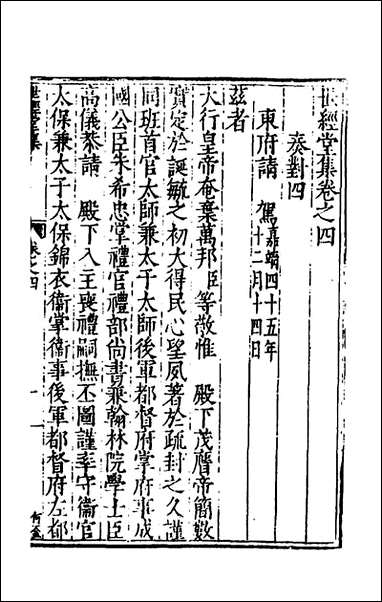 世經堂集卷之四
奏對四
東府請　駕嘉靖四十五年十二月十四日
茲者
大行皇帝奄棄萬邦臣等敬惟　殿下茂膺帝簡數
實定於誕毓之初大得民心望夙著於疏封之久謹
同班首官太師兼太子太師後軍都督府掌府事成
國公臣朱希忠掌禮官禮部尚書兼翰林院學士臣
高儀恭請　殿下入主喪禮嗣撫丕圖謹率守衞官
太保兼太子太保錦衣衞掌衞事後軍都督府左都
世經堂集
卷之四
一